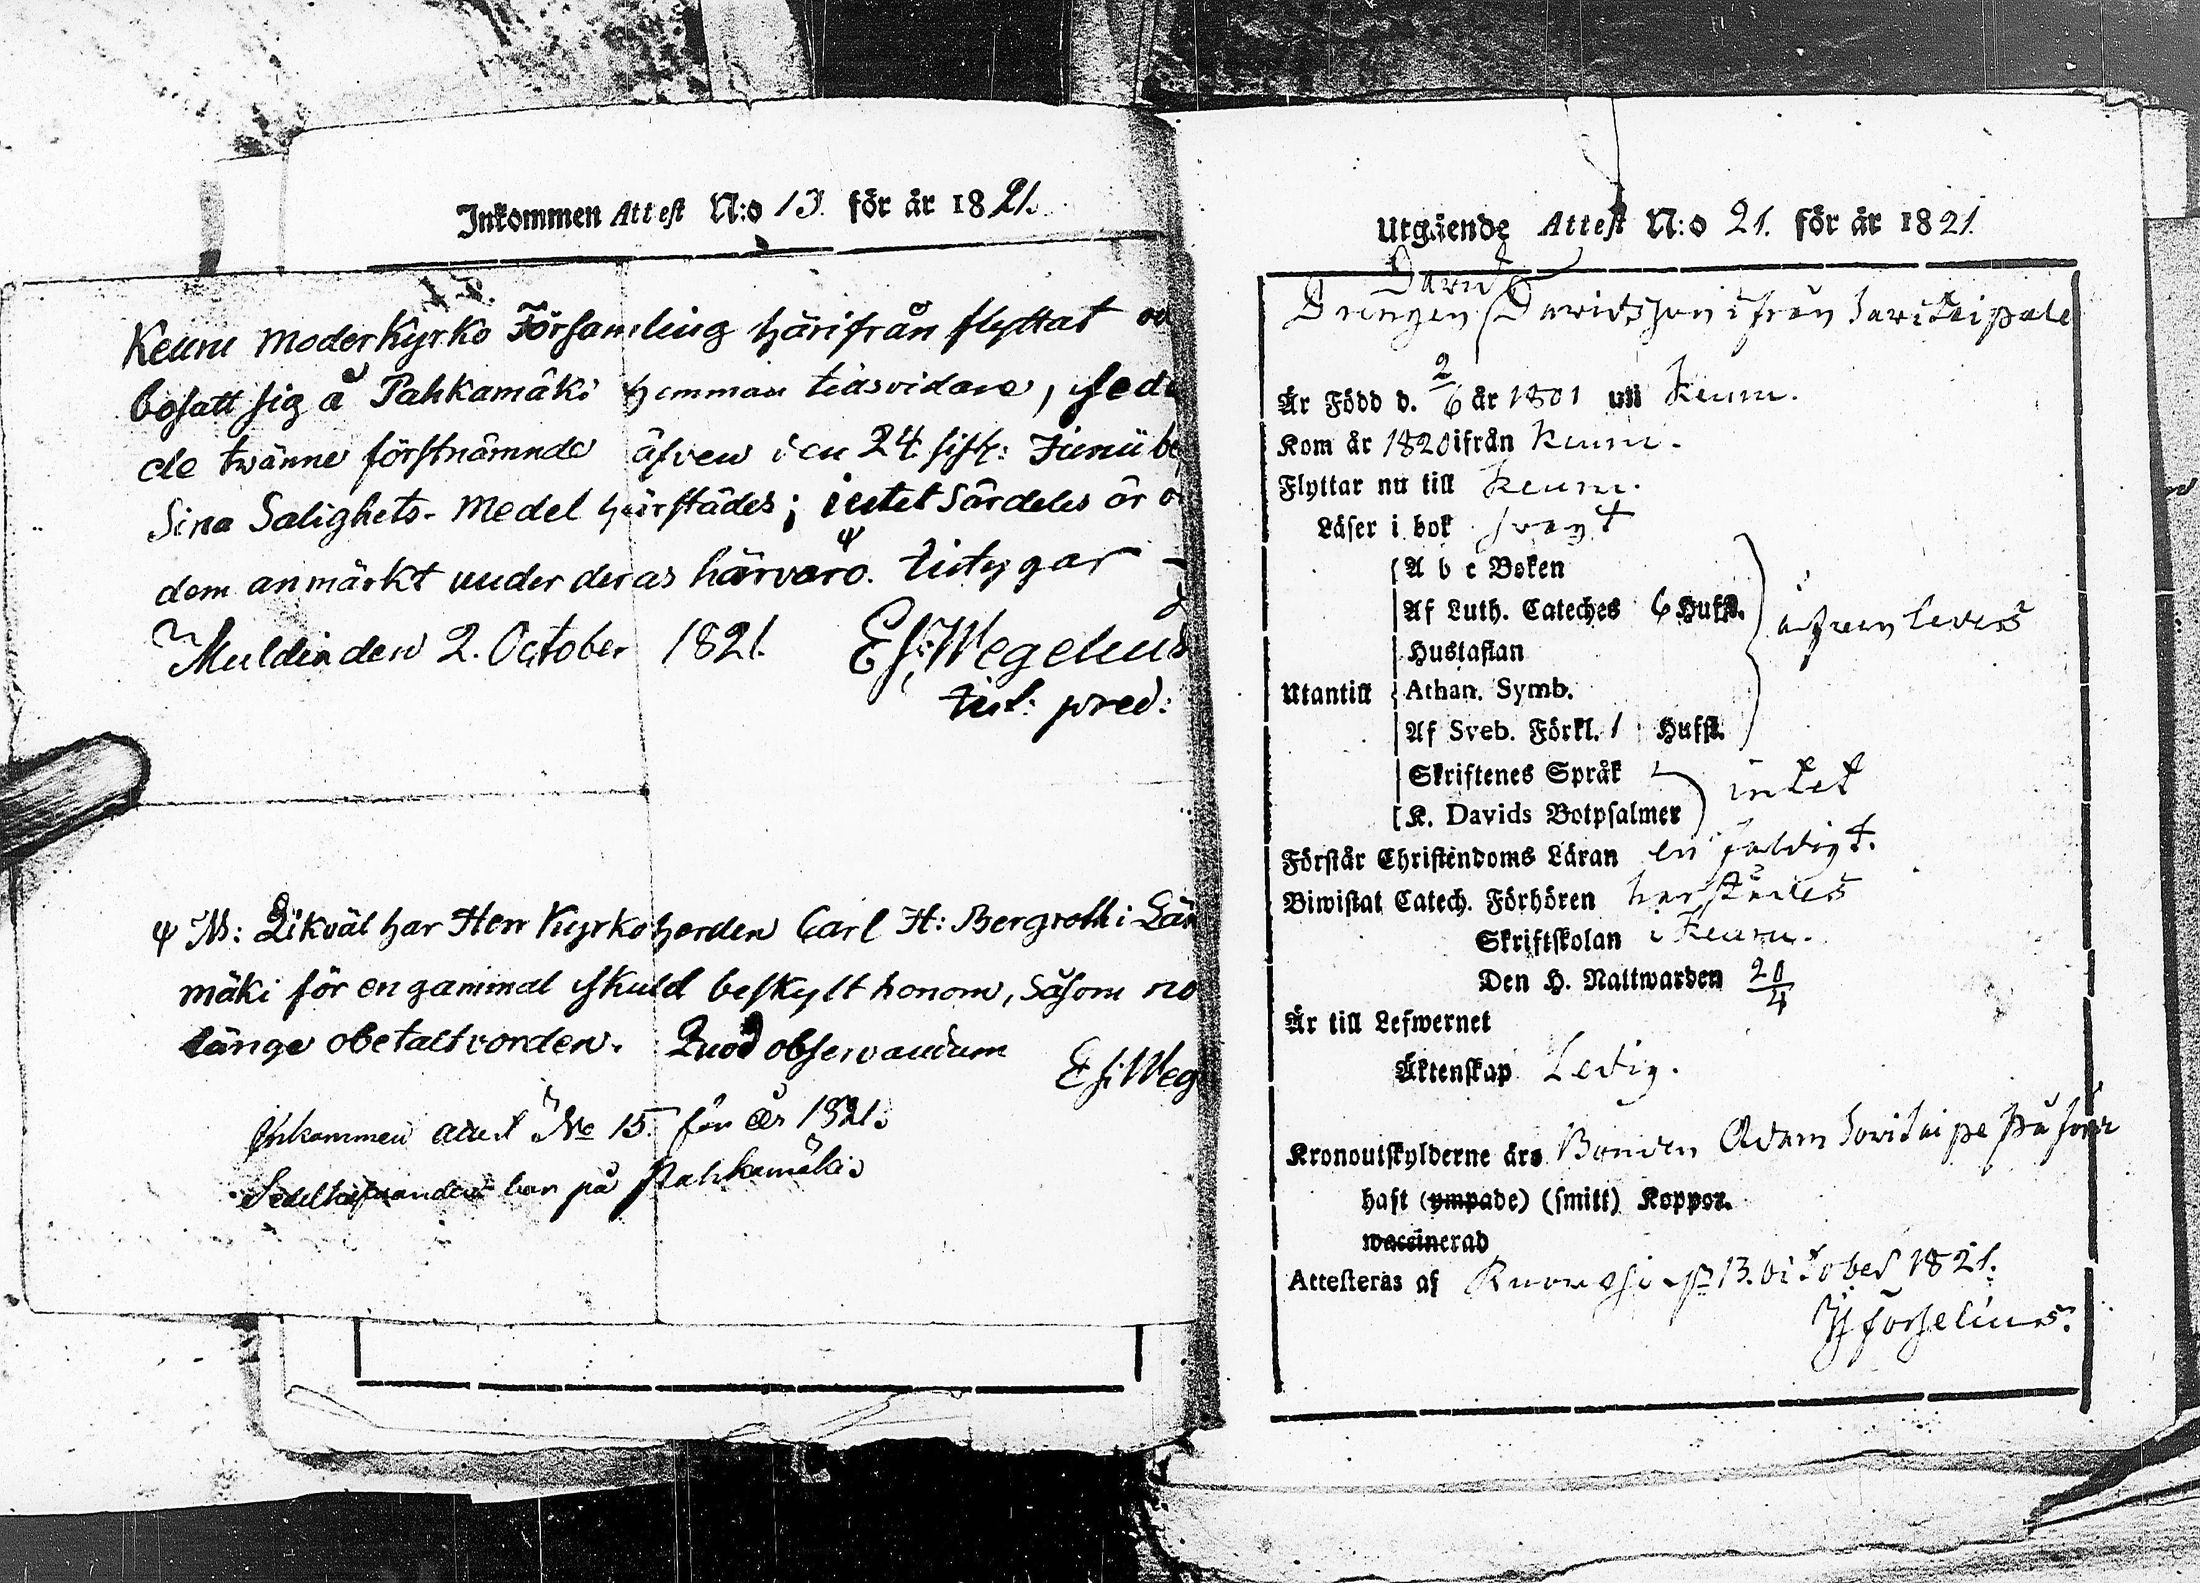 Inkommen Attest N:o 13. för år 1821.
15.
Keuru moderkyrko Församling härifrån flyttat
bosatt sig å Pahkamäki hemman tilsvidare,
de twänne förstnämnde äfven den 24 sistl: Junii
Sina Salighets-Medel härstädes; intet Särdeles är
dem anmärkt under deras härvaro. ψ tistygar
Muldia den 2. October 1821. Es: Wegelius
tist: pred:
ψ NB: Likväl har Herr Kyrkoherden Carl H: Bergroth i
mäki för en gammal skuld beskylt honom, såsom
länge obetalt vorden. Quod observandum
Es: Weg
Inkommen attest No 15. för år 1821.
Sedelhafvanden bor på Pahkamäki.
Utgående Attest N:o 21. för år 1821.
David
Drengen Davidsson ifrån Savitaipale
Är Född d. 2/6 år 1801 uti Keuru.
Kom år 1820 ifrån Keuru.
Flyttar nu till Keuru.
Läser i bok svagt
A b c Boken
Af Luth. Cateches 6 Hufst.
Hustaflan
Utantill Athan. Symb.
Af Sveb. Förkl. 1 Hufst.
Skriftenes Språk
intet
K. Davids Botpsalmer
Förstår Christendoms Läran enfaldigt.
Biwistat Catech. Förhören härstädes
Skriftskolan i Keuru.
Den H. Nattwarden 20/4
Är till Lefwernet
Äktenskap Ledig.
Kronoutskylderne äro Bonden Adam Savitaipale påförr
haft (ympade) (smitt) Koppor.
waccinerad
Attesteras af Ruovesi 13. October 1821.
Hforselius.